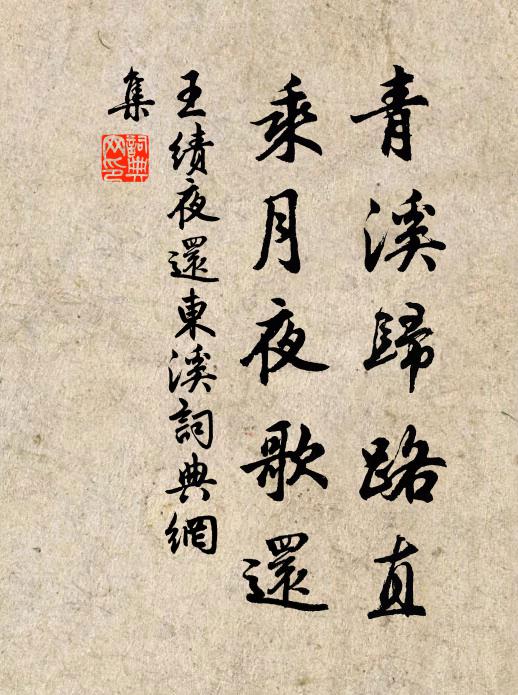 青溪歸路直
乘月夜歌還
王績夜還東溪詞典網
集
詞典
网印